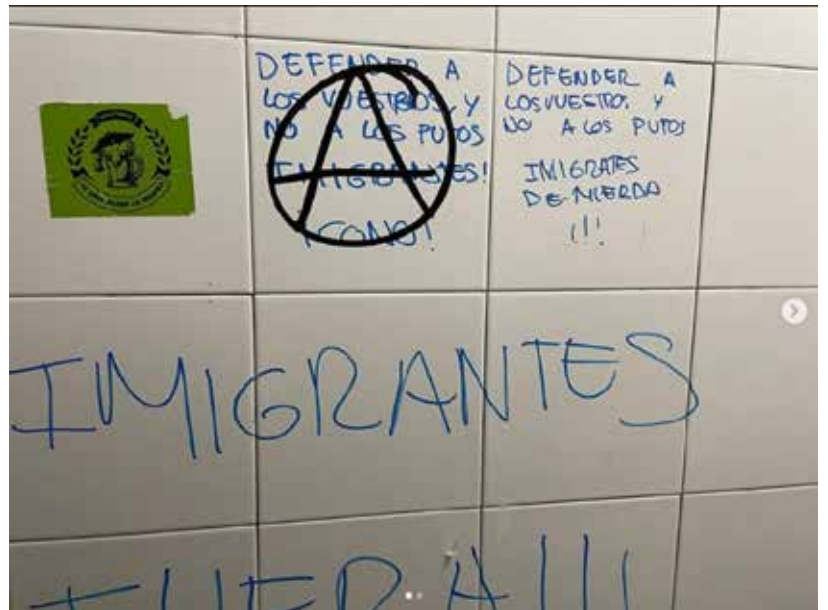 DEFENDER A
LOS VUESTROS, Y
NO A LOS PUTOS
IMIGRANTES!
¡COÑO!
DEFENDER A
LOS VUESTROS, Y
NO A LOS PUTOS
IMIGRATES
DE MIERDA
!!!
IMIGRANTES
FUERA!!!